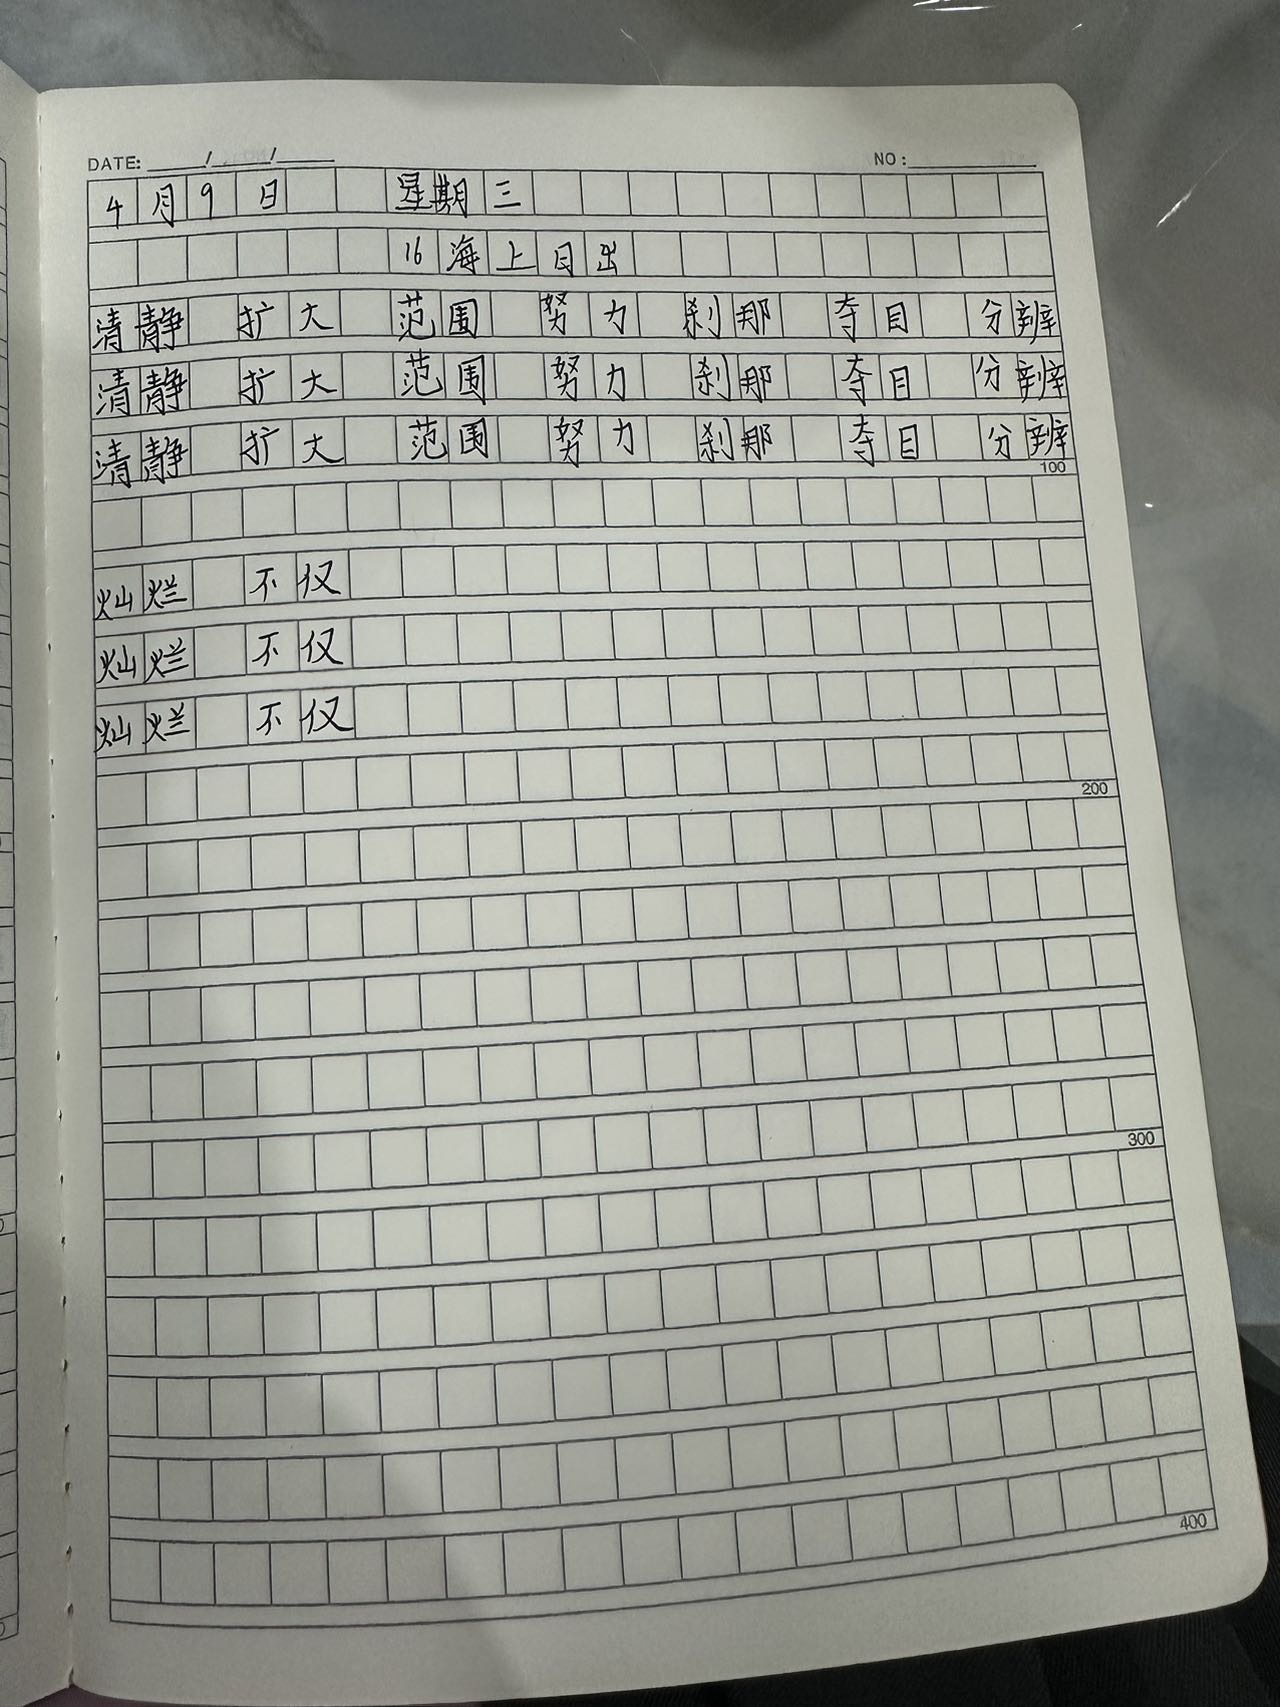 DATE: / /
NO:
4月9日 星期三
16 海上日出
清静 扩大 范围 努力 刹那 夺目 分辨
清静 扩大 范围 努力 刹那 夺目 分辨
清静 扩大 范围 努力 刹那 夺目 分辨
100
灿烂 不仅
灿烂 不仅
灿烂 不仅
200
300
400